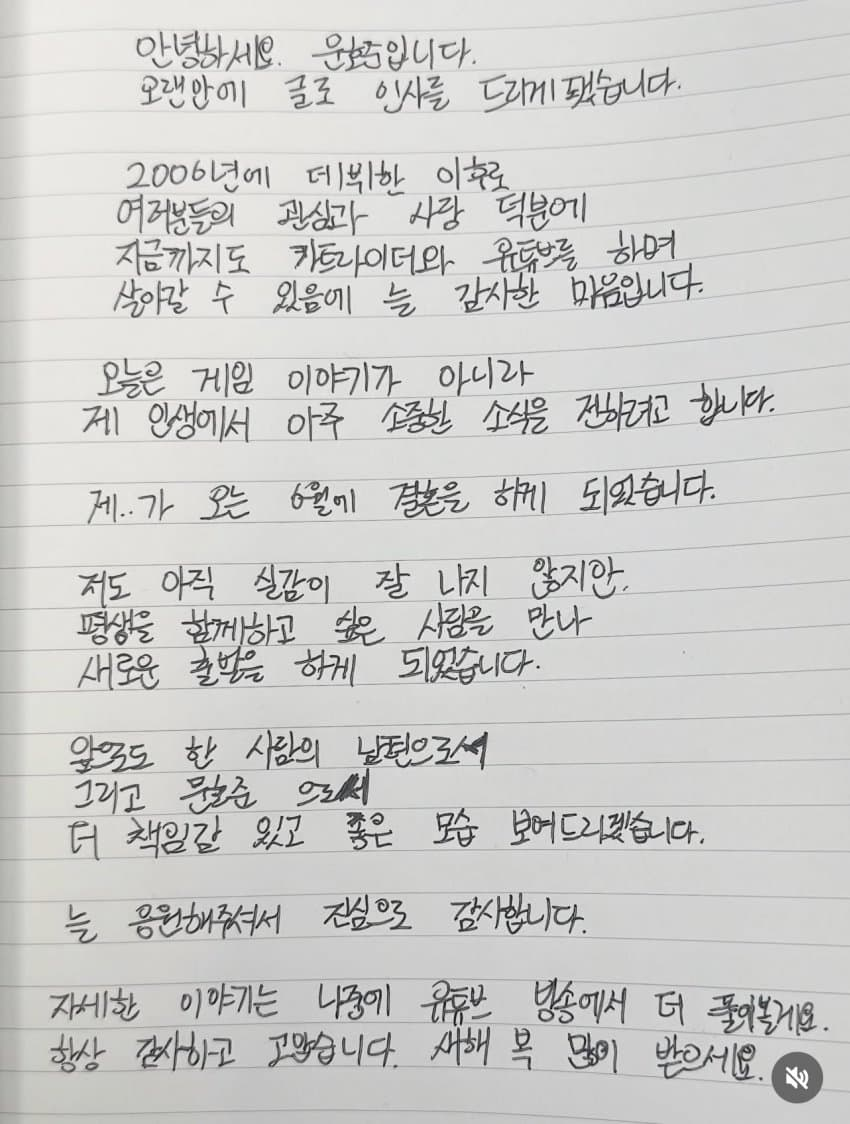 안녕하세요. 문호준입니다.
오랜만에 글로 인사를 드리게 됐습니다.
2006년에 데뷔한 이후로
여러분들의 관심과 사랑 덕분에
지금까지도 카트라이더와 유튜브를 하며
살아갈 수 있음에 늘 감사한 마음입니다.
오늘은 게임 이야기가 아니라
제 인생에서 아주 소중한 소식을 전하려고 합니다.
제..가 오는 6월에 결혼을 하게 되었습니다.
저도 아직 실감이 잘 나지 않지만,
평생을 함께하고 싶은 사람을 만나
새로운 출발을 하게 되었습니다.
앞으로도 한 사람의 남편으로서
그리고 문호준 으로서
더 책임감 있고 좋은 모습 보여드리겠습니다.
늘 응원해주셔서 진심으로 감사합니다.
자세한 이야기는 나중에 유튜브 방송에서 더 풀어볼게요.
항상 감사하고 고맙습니다. 새해 복 많이 받으세요.